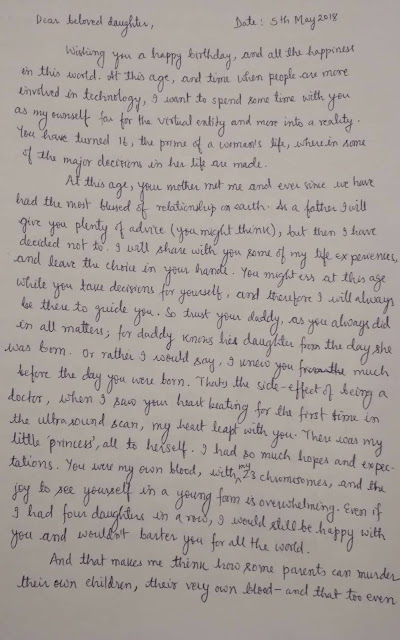 Dear beloved daughter, Date: 5th May 2018
Wishing you a happy birthday, and all the happiness
in this world. At this age, and time when people are more
involved in technology, I want to spend some time with you
as my ownself far for the virtual entity and more into a reality.
You have turned 16, the prime of a woman's life, wherein some
of the major decisions in her life are made.
At this age, your mother met me and ever since we have
had the most blessed of relationship on earth. As a father I will
give you plenty of advice (you might think), but then I have
decided not to. I will share with you some of my life experiences,
and leave the choice in your hands. You might err at this age
while you take decisions for yourself, and therefore I will always
be there to guide you. So trust your daddy, as you always did
in all matters; for daddy knows his daughter from the day she
was born. Or rather I would say, I knew you much
before the day you were born. Thats the side-effect of being a
doctor, when I saw your heart beating for the first time in
the ultrasound scan, my heart leapt with you. There was my
little 'princess', all to herself. I had so much hopes and expec-
tations. You were my own blood, with my 23 chromosomes, and the
joy to see yourself in a young form is overwhelming. Even if
I had four daughters in a row, I would still be happy with
you and wouldn't barter you for all the world.
And that makes me think how some parents can murder
their own children, their very own blood - and that too even